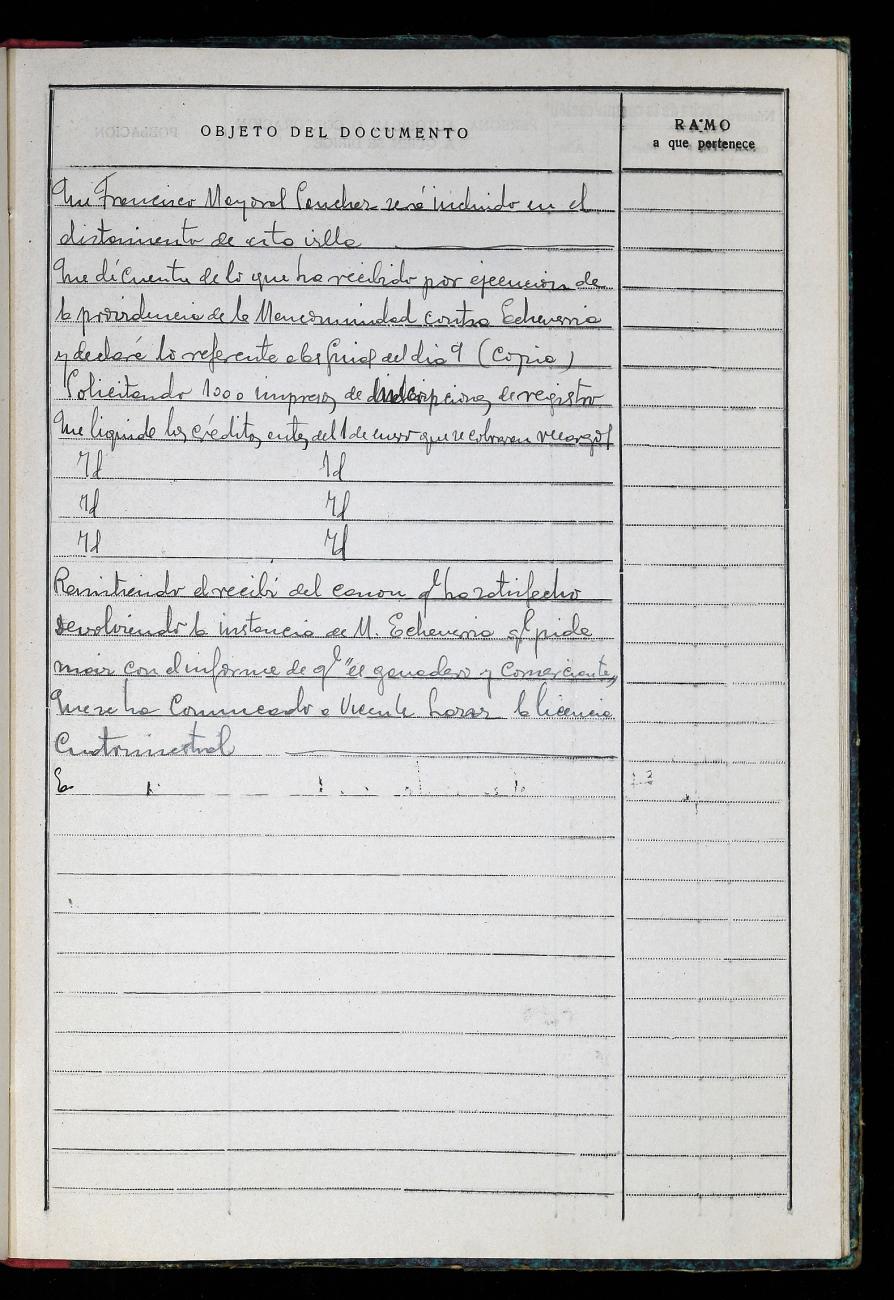 OBJETO DEL DOCUMENTO
RAMO
a que pertenece
Que Francisco Mayoral Sanchez será incluido en el
alistamiento de esta villa
Que dé cuenta de lo que ha recibido por ejecucion de
la providencia de la Mancomunidad contra Echeverria
y declaré lo referente a las guias del dia 9 (Copia)
Solicitando 1000 impresos de inscripciones de registro
Que liquide los créditos antes del 1 de enero que se cobraran recargos
Id Id
Id Id
Id Id
Remitiendo el recibí del canon qe ha satisfecho
Devolviendo la instancia de M. Echeverria qe pide
con el informe de qe "es ganadero y Comerciante"
Que se ha Comunicado a Vicente la licencia
Cuatrimestral